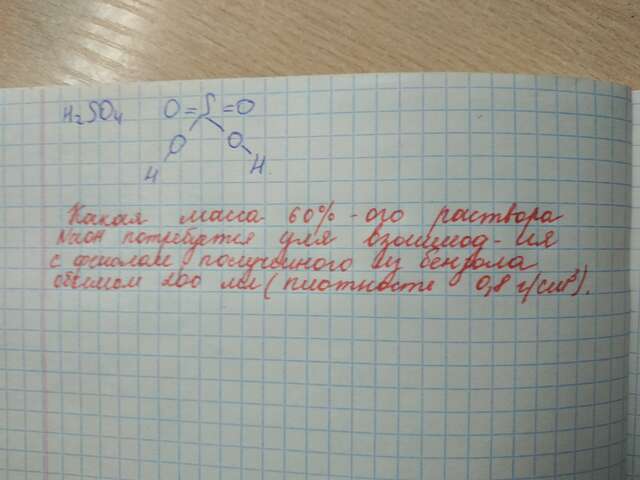 H₂SO₄
O=S=O
O O
H H
Какая масса 60% -ого раствора
NaOH потребуется для взаимод-ия
с фенолом, полученного из бензола
объемом мл (плотность 0,8 г/см³).